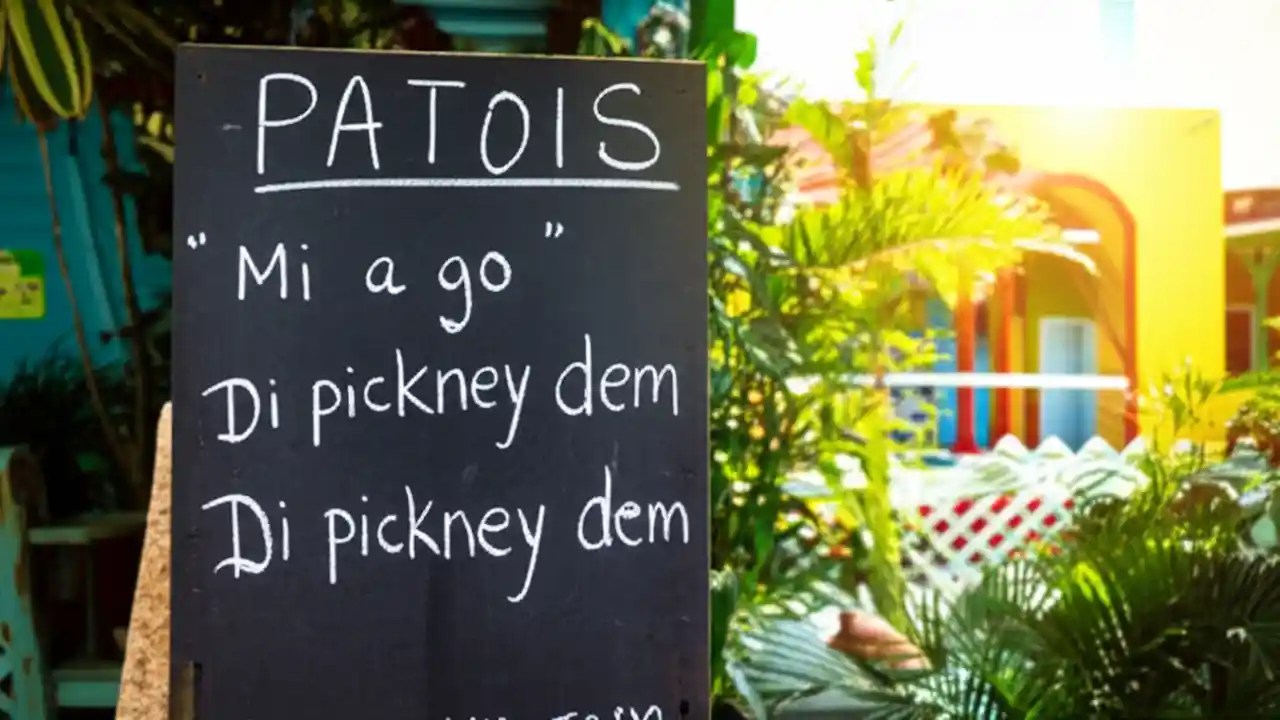 PATOIS
"Mi a go"
Di pickney dem
Di pickney dem